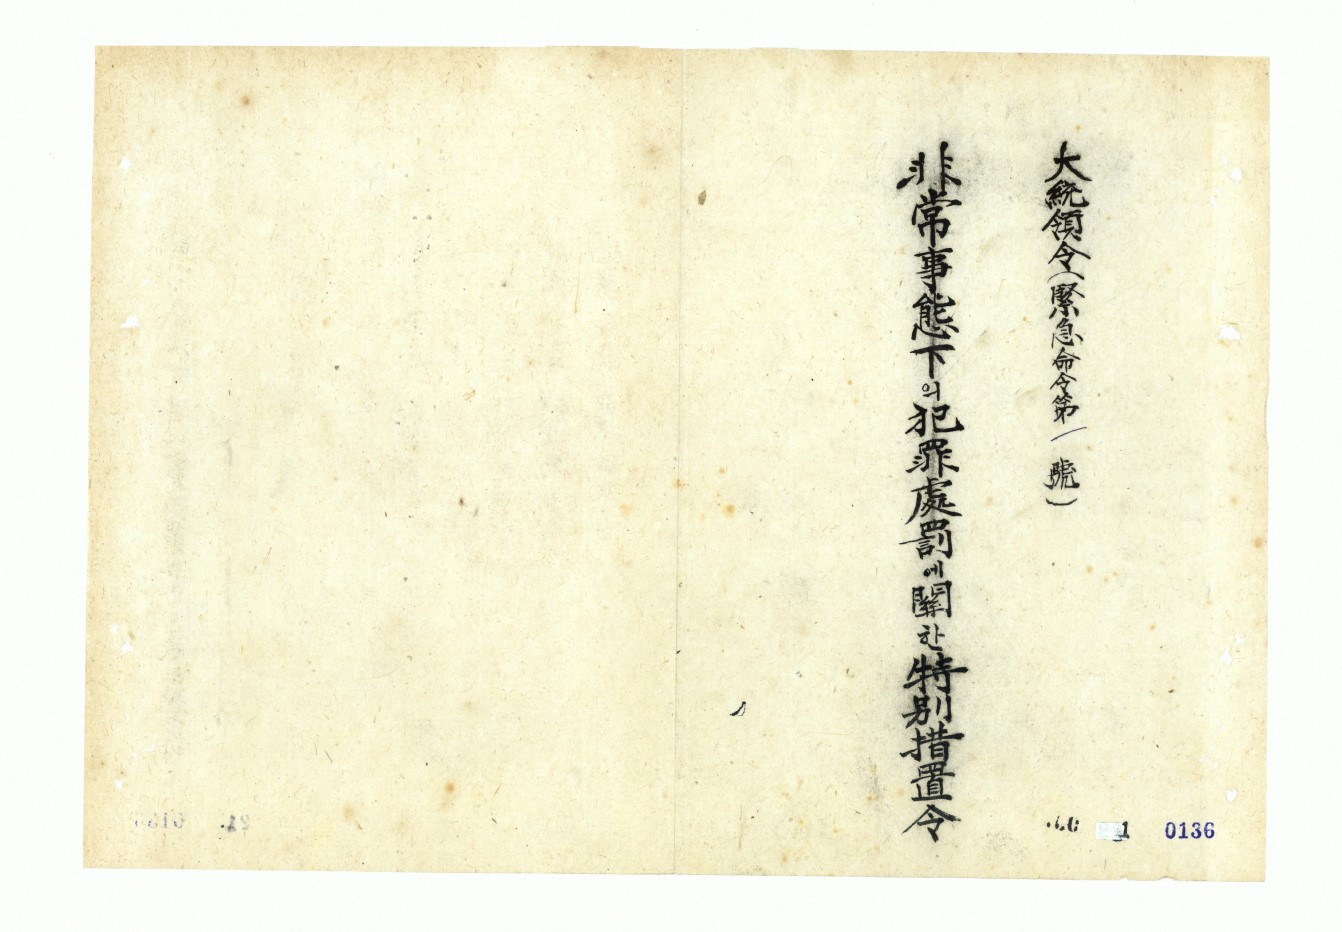 大統領令(緊急命令第一號)
非常事態下의犯罪處罰에關한特別措置令
0136